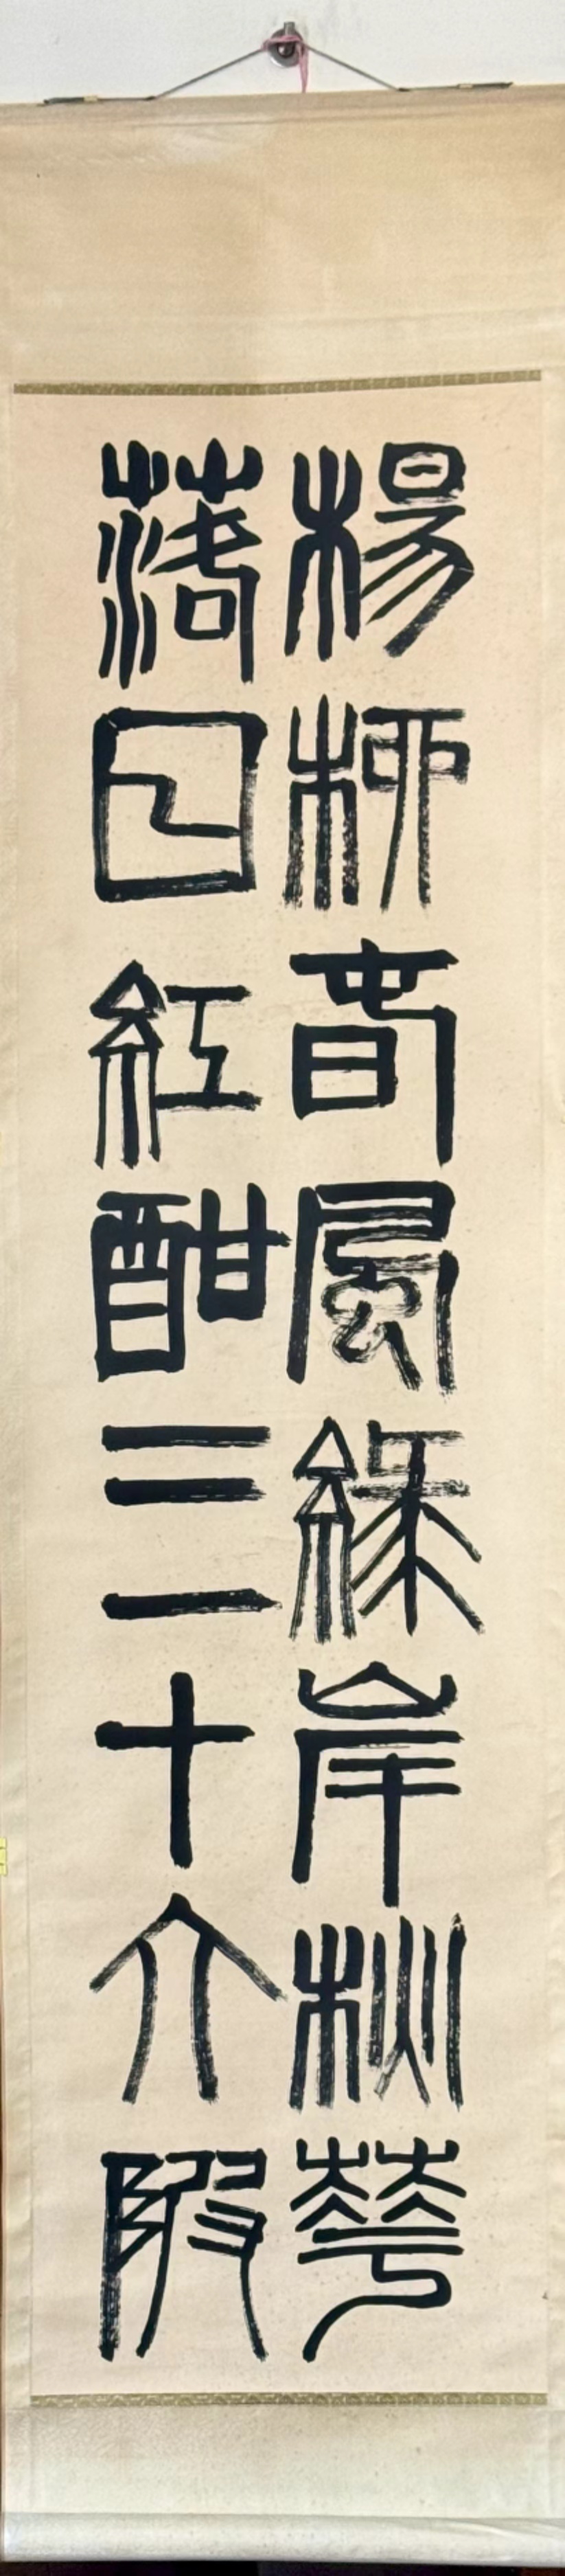 楊柳春風綠岸桃華
落日紅酣三十六陂